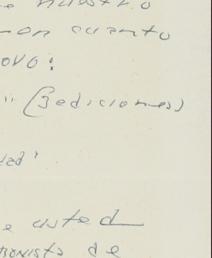 e nuestro
con cuanto
ovo:
" (3 ediciones)
dad"
e usted
ionista de